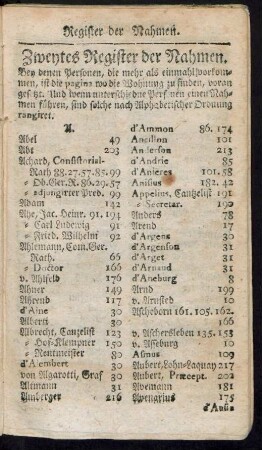 Register der Nahmen.
Zweytes Register der Nahmen.
Bey denen Personen, die mehr als einmahl vorkom-
men, ist die pagina wo die Wohnung zu finden, voran
gesetzt. Und wenn unterschiedne Personen einen Nah-
men führen, sind solche nach Alphabetischer Ordnung
rangiret.
A.
Abel 49
Abt 203
Achard, Consistorial-
Rath 88.27.57.85.99
= Ob.Ger.R. 86.29.57
= adjungirter Pred. 99
Adam 142
Ahe, Jac. Heinr. 91. 194
= Carl Ludewig 91
= Fried. Wilhelm 92
Ahlemann, Com.Ger.
Rath. 66
= Doctor 166
v. Ahlfeld 176
Ahner 149
Ahrend 117
d'Aine 30
Alberti 30
Albrecht, Canzelist 123
= Hof-Klempner 150
= Rentmeister 80
d'Alembert 30
von Algarotti, Graf 30
Altmann 31
Amberger 216
d'Ammon 86. 174
Ancillon 101
Anderson 213
d'Andrie 85
d'Anieres 101. 58
Anisius 182. 42
Appelius, Canzelist 191
= Secretar. 190
Anders 78
Arend 17
d'Argens 30
d'Argenson 31
d'Arget 31
d'Arnaud 31
d'Aneburg 8
Arnd 199
v. Arnsted 10
Ascheborn 161. 105. 162.
166
v. Aschersleben 135. 153
v. Asseburg 10
Asmus 109
Aubert, Lohn-Laquay 217
Aubert, Præcept. 202
Avemann 181
Avengrius 175
d'Ausa